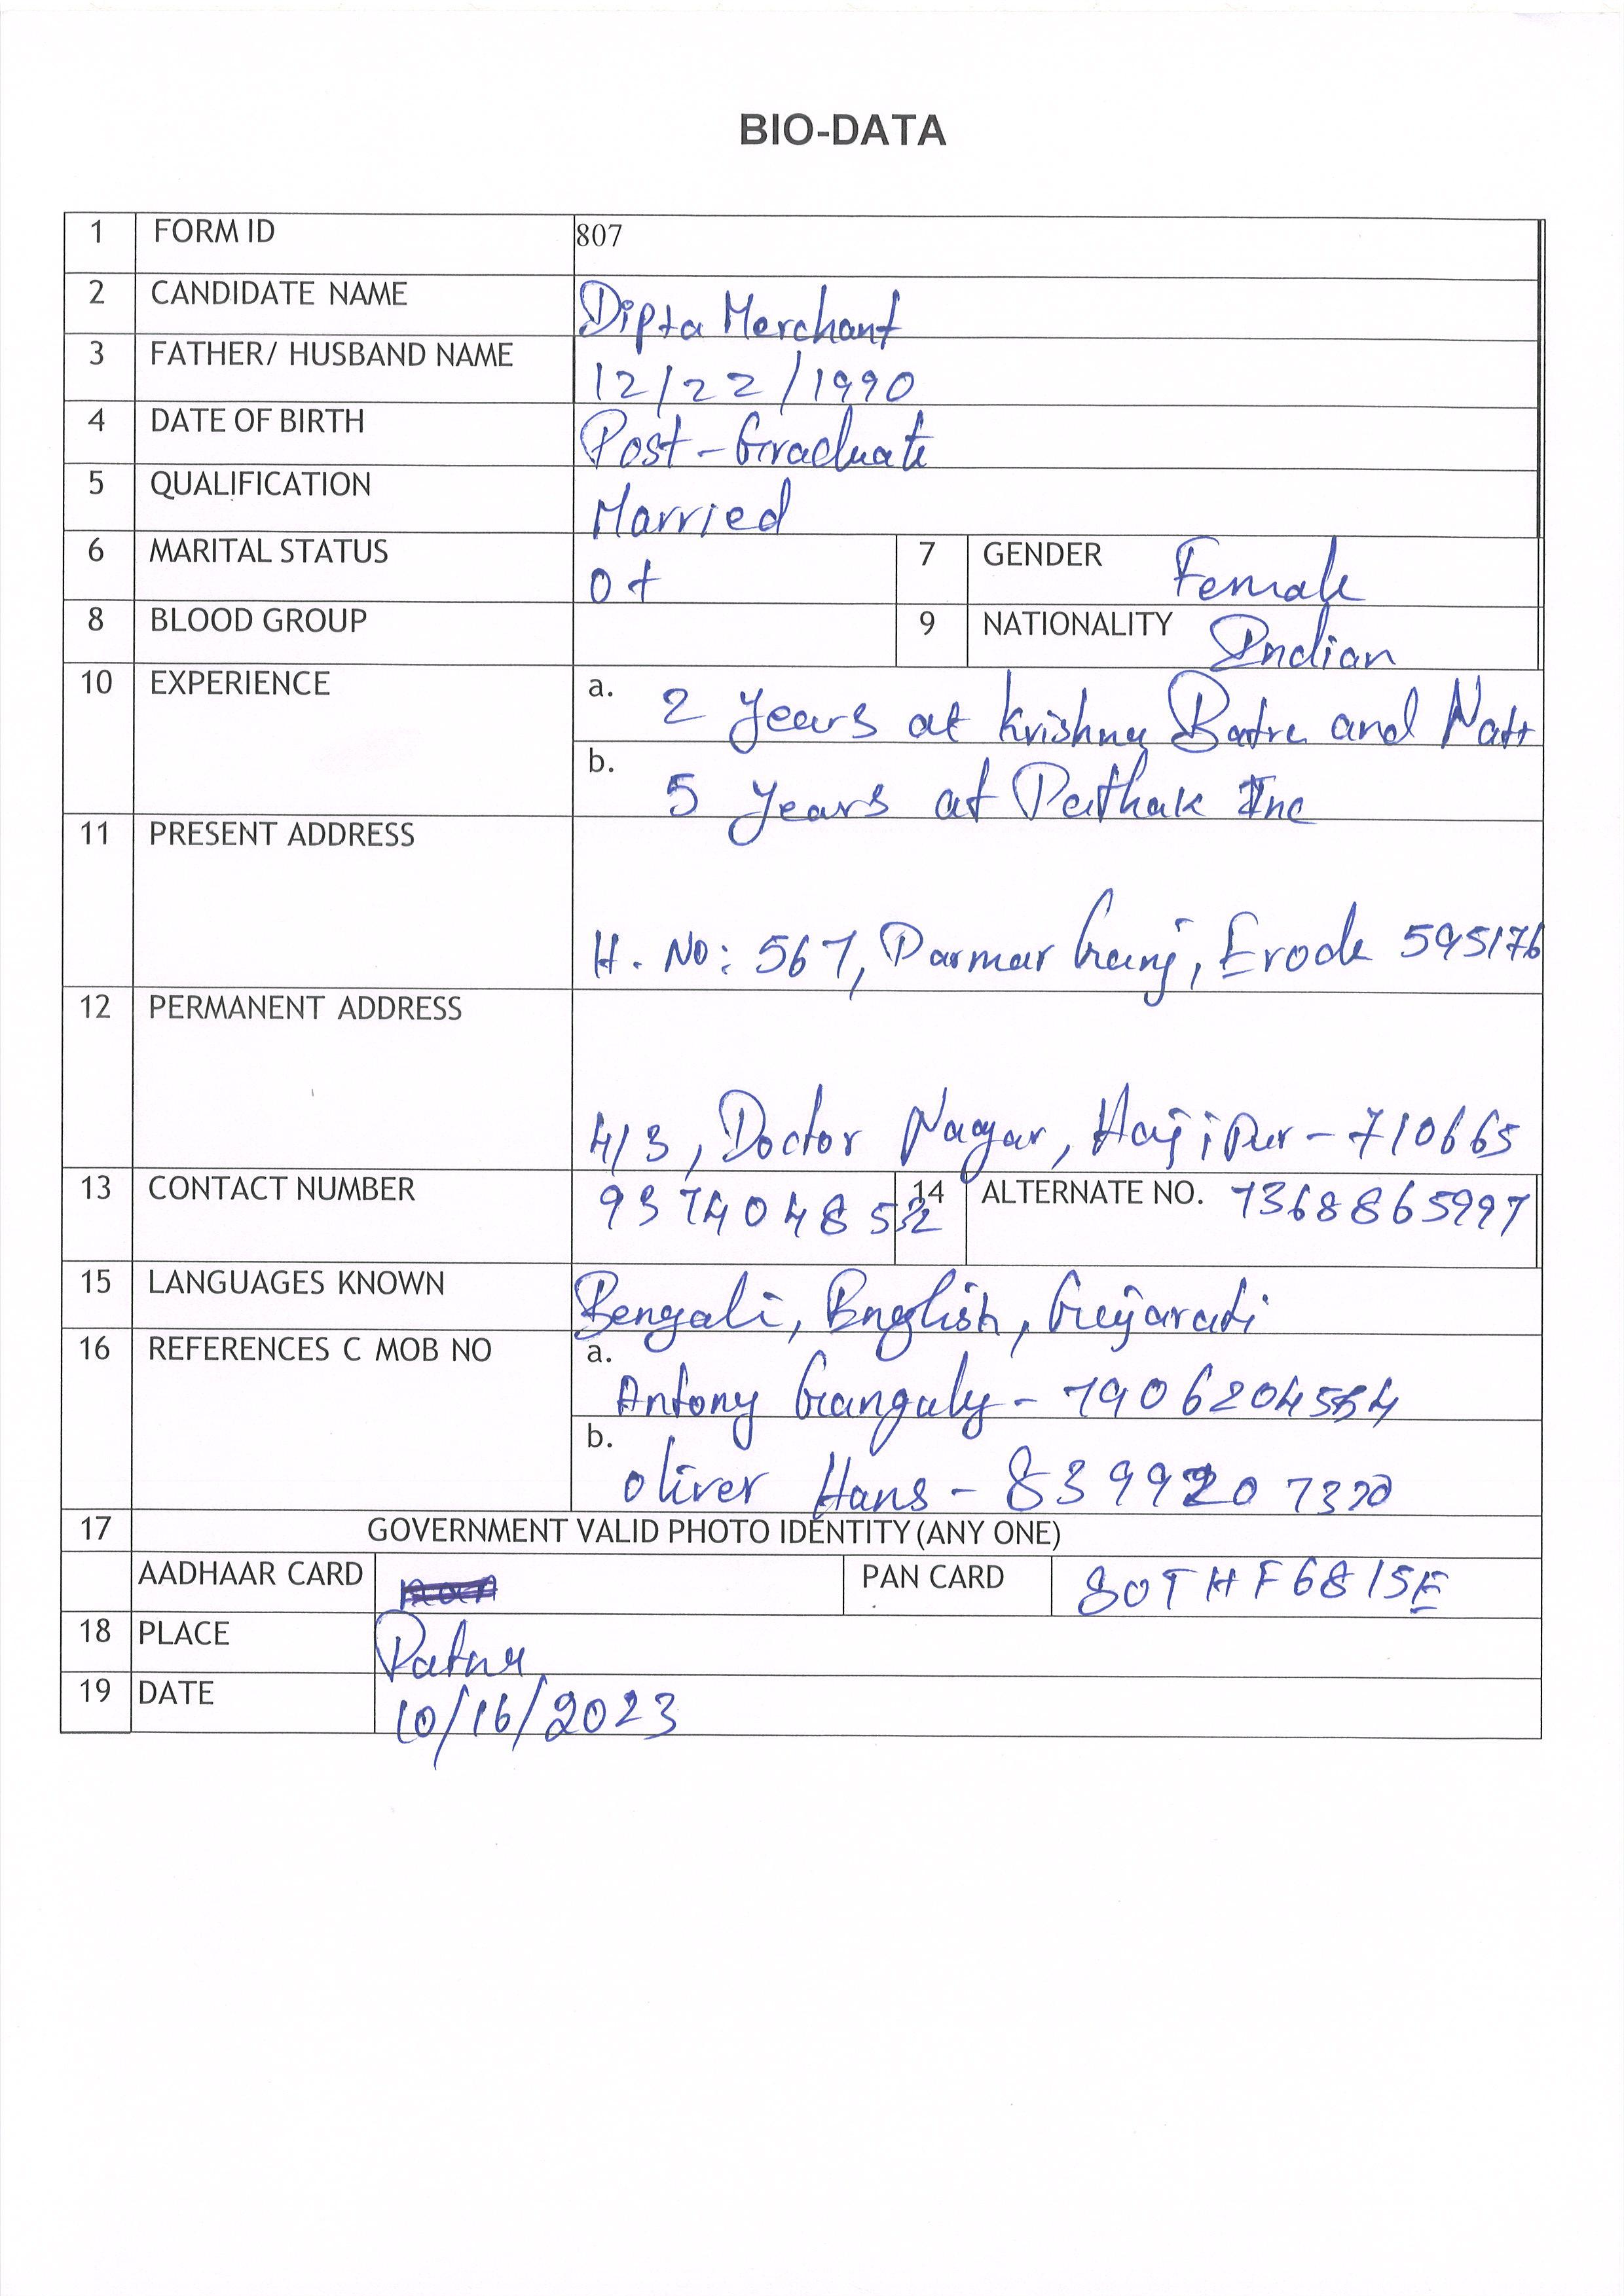 BIO-DATA
1 FORM ID 807
2 CANDIDATE NAME Dipta Merchant
3 FATHER/ HUSBAND NAME 12/22/1990
4 DATE OF BIRTH Post-Graduate
5 QUALIFICATION Married
6 MARITAL STATUS O+ 7 GENDER Female
8 BLOOD GROUP 9 NATIONALITY Indian
10 EXPERIENCE a. 2 years at Krishna Batra and Natt
b. 5 years at Pathak Inc
11 PRESENT ADDRESS
H. No: 567, Parmar Ganj, Erode 595176
12 PERMANENT ADDRESS
4/3, Doctor Nagar, Hajipur - 710665
13 CONTACT NUMBER 9374048532 14 ALTERNATE NO. 7368865997
15 LANGUAGES KNOWN Bengali, English, Gujarati
16 REFERENCES C MOB NO a.
Antony Ganguly - 7906204554
b.
Oliver Hans - 8399207370
17 GOVERNMENT VALID PHOTO IDENTITY (ANY ONE)
AADHAAR CARD PAN CARD 80THF6815E
18 PLACE Patna
19 DATE 10/16/2023